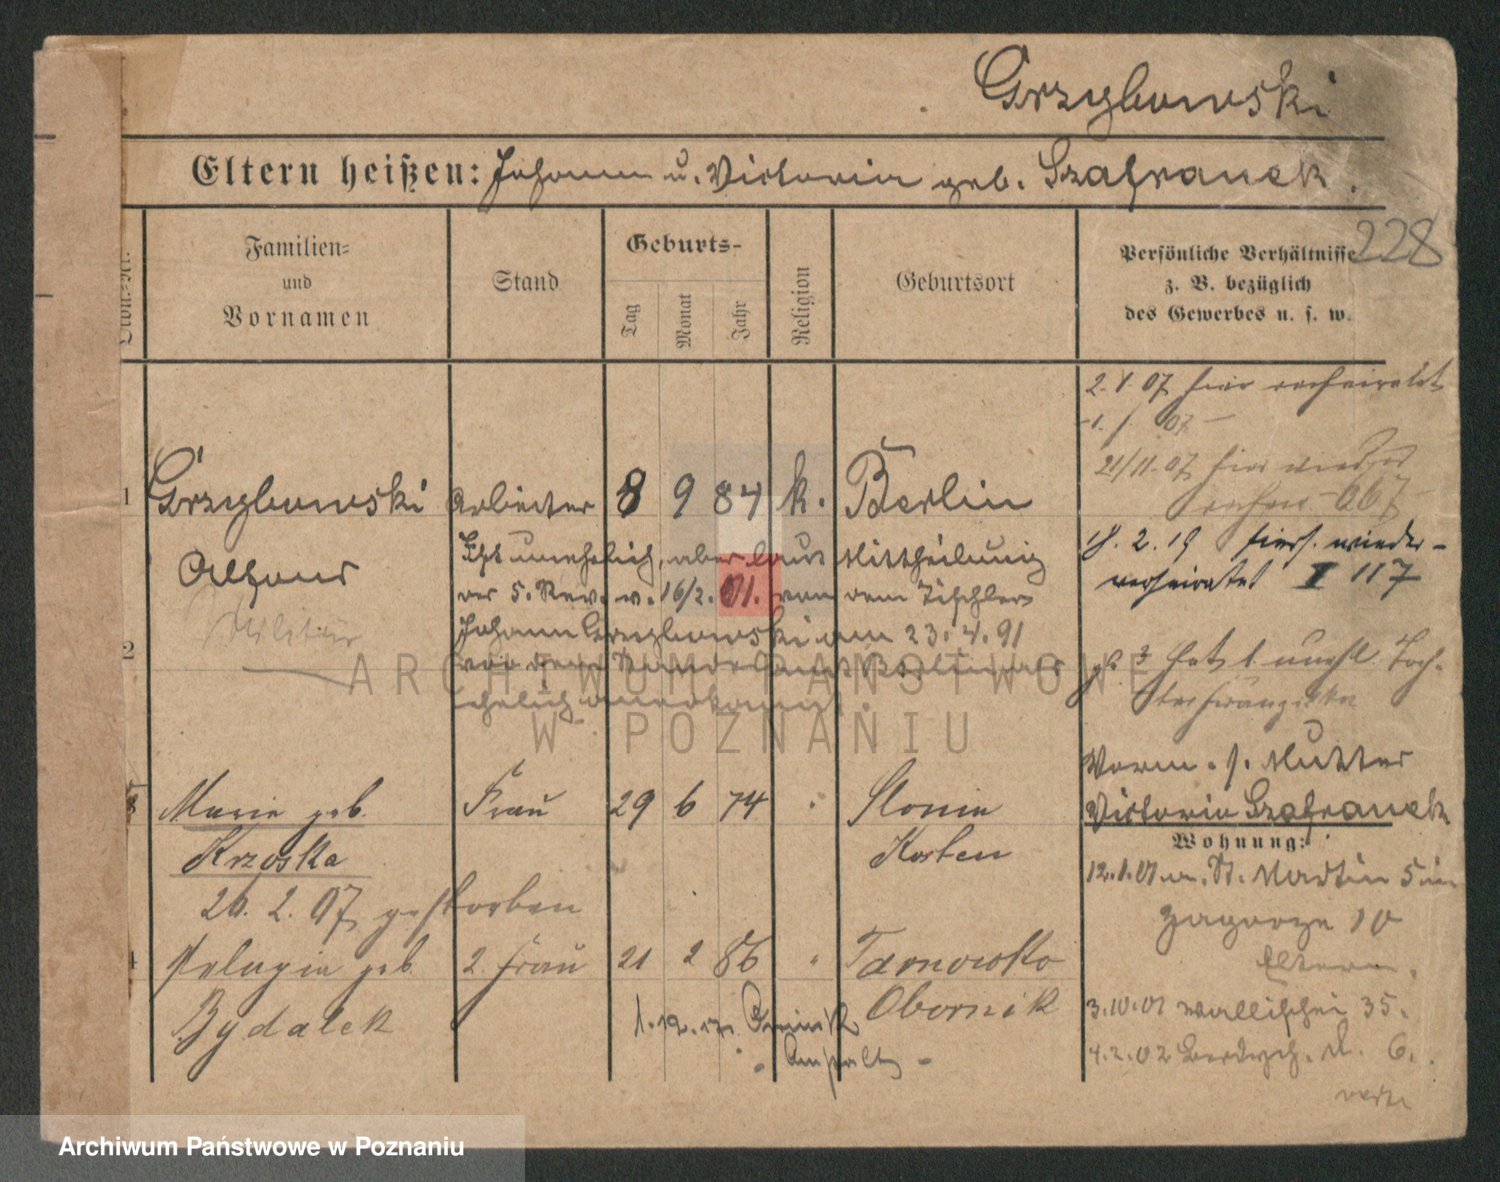 Grzybowski
Eltern heißen: Johann u. Victoria geb. Szafranek.
228
Familien-
und
Vornamen
Stand
Geburts-
Tag
Monat
Jahr
Religion
Geburtsort
Persönliche Verhältnisse
z. B. bezüglich
des Gewerbes u. s. w.
2. 1. 07 hier verheiratet
21/11. 07 hier wieder
667
1 Grzybowski Arbeiter 8 9 84 k. Berlin
Alfons
Militär
Ist unehelich, aber laut Mittheilung
des 5. Rev. v. 16/2. 01. von dem Tischler
Johann Grzybowski am 23. 4. 91
vor dem Standesamt Berlin als
ehelich anerkannt.
18. 2. 19 hiers. wieder-
verheiratet I 117
2
hat 1 unehl. Toch-
ter Franziska
Vorm. s. Mutter
Victoria Szafranek
Wohnung:
3 Marie geb. Frau 29 6 74 " Slonin
Krzoska Kosten
26. 2. 07 gestorben
4 Pelagia geb. 2. Frau 21 2 86 " Tarnowko
Bydalek Obornik
12. 1. 01 St. Martin 5
Zagorze 10
Eltern.
3. 10. 01 Wallischei 35.
4. 2. 02 6.
ARCHIWUM PAŃSTWOWE
W POZNANIU
Archiwum Państwowe w Poznaniu